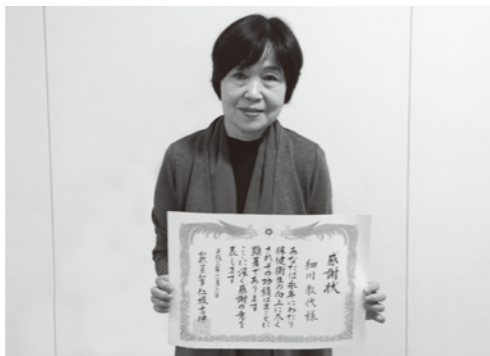 感謝状
細川教代様
あなたは永年にわたり
保健衛生の向上に尽く
されその功績はまことに
顕著であります
ここに深く感謝の意を
表します
仁坂吉伸